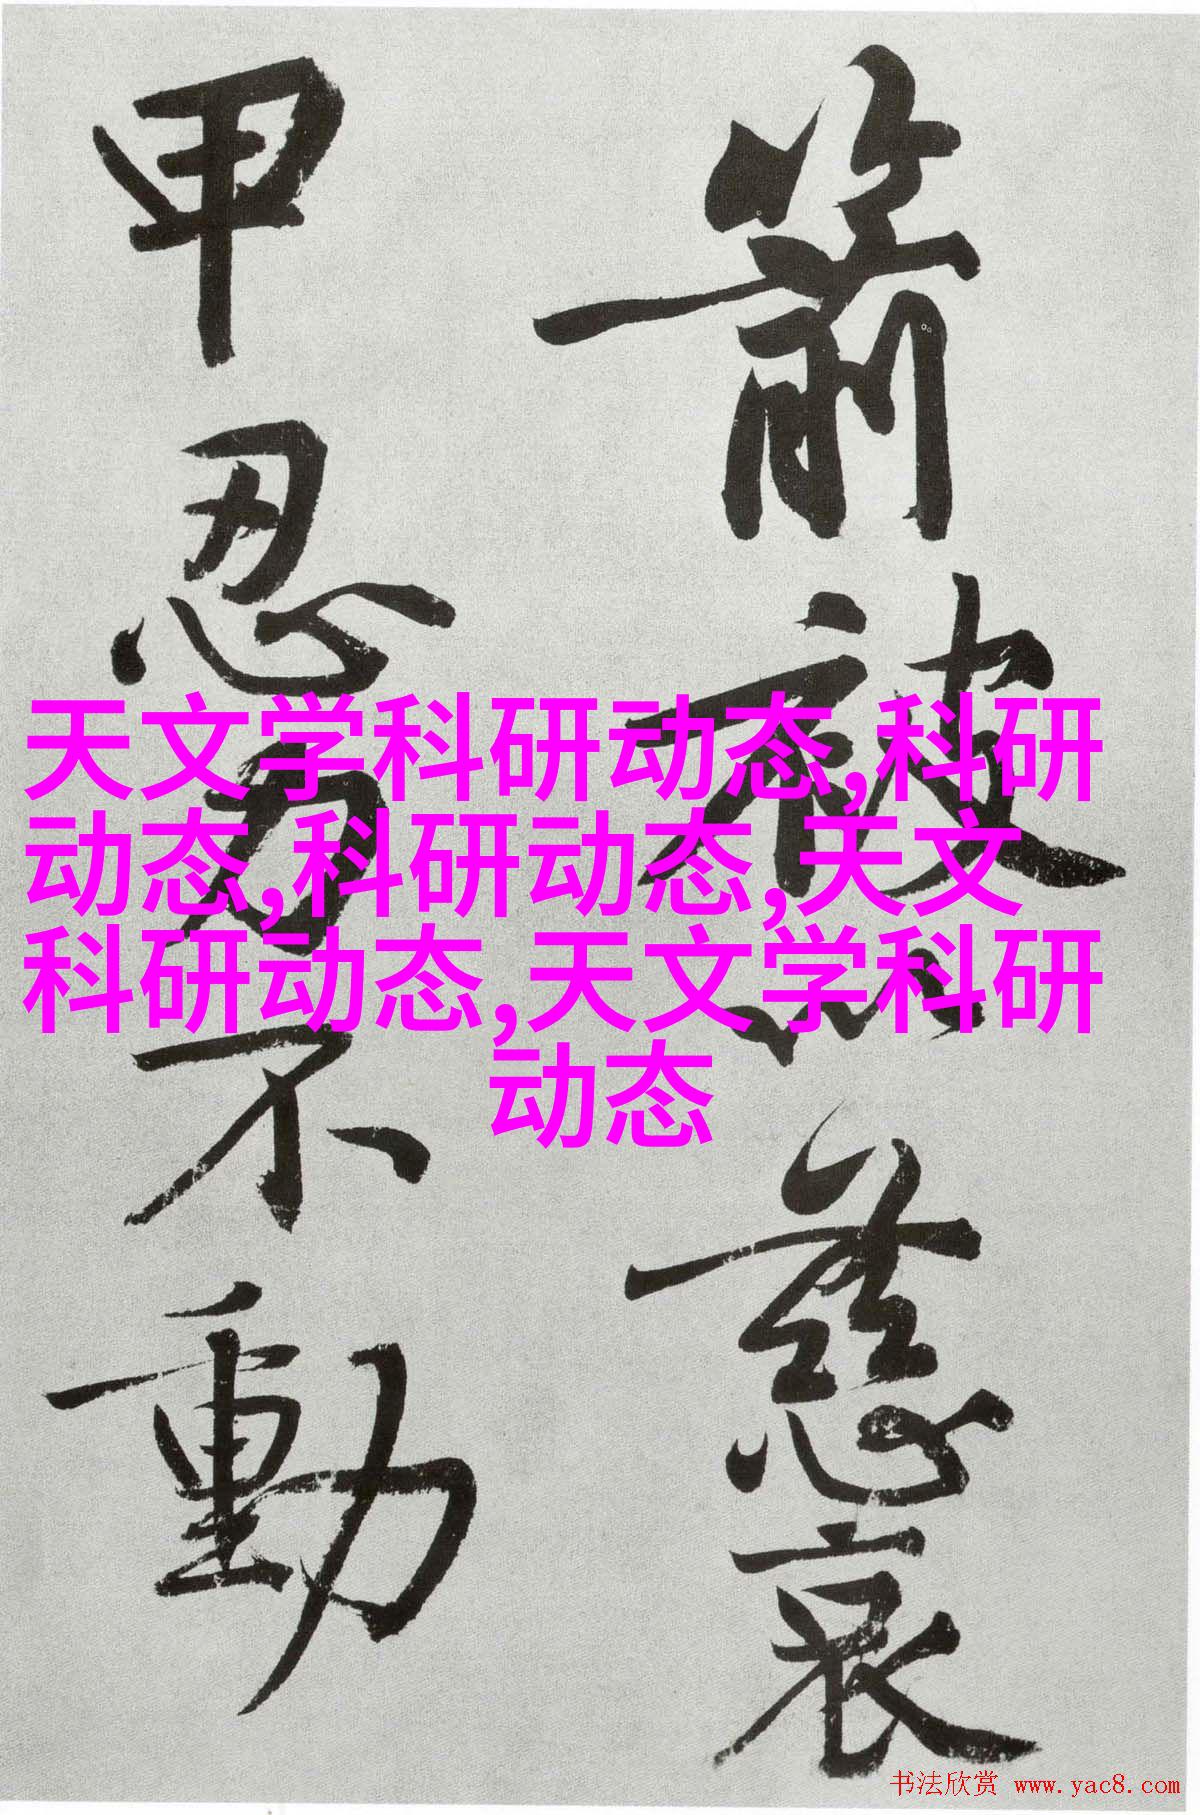 箭被慈哀
甲忍力不動
天文学科研动态,科研
动态,科研动态,天文
科研动态,天文学科研
动态
书法欣赏 www.yac8.com